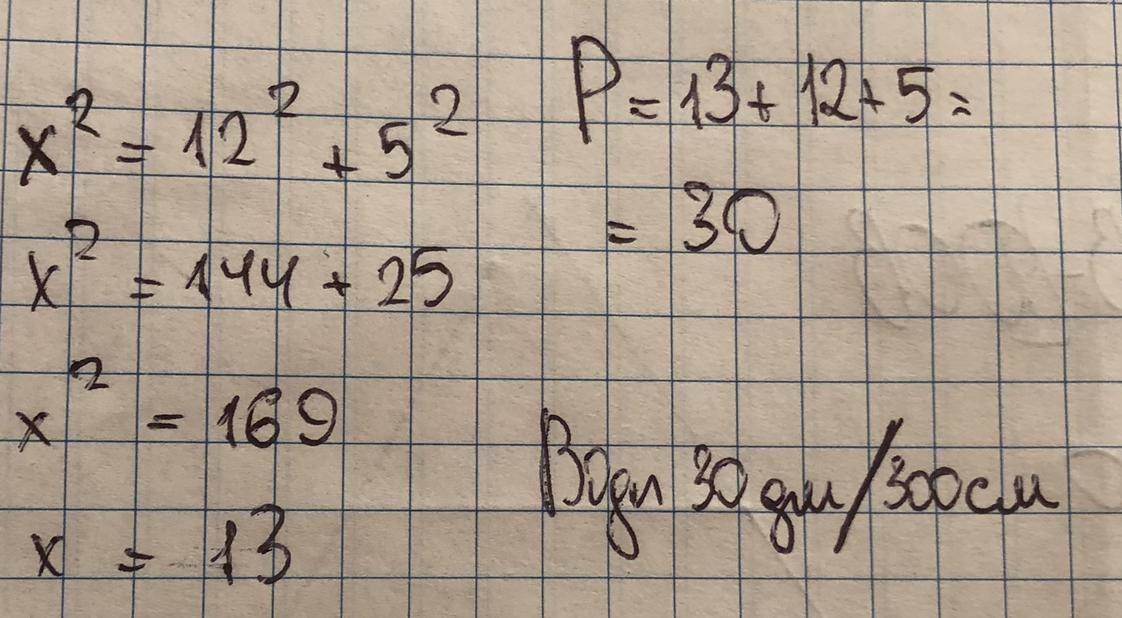 x² = 12² + 5²
x² = 144 + 25
x² = 169
x = 13
P = 13 + 12 + 5 =
= 30
30 дм/300 см